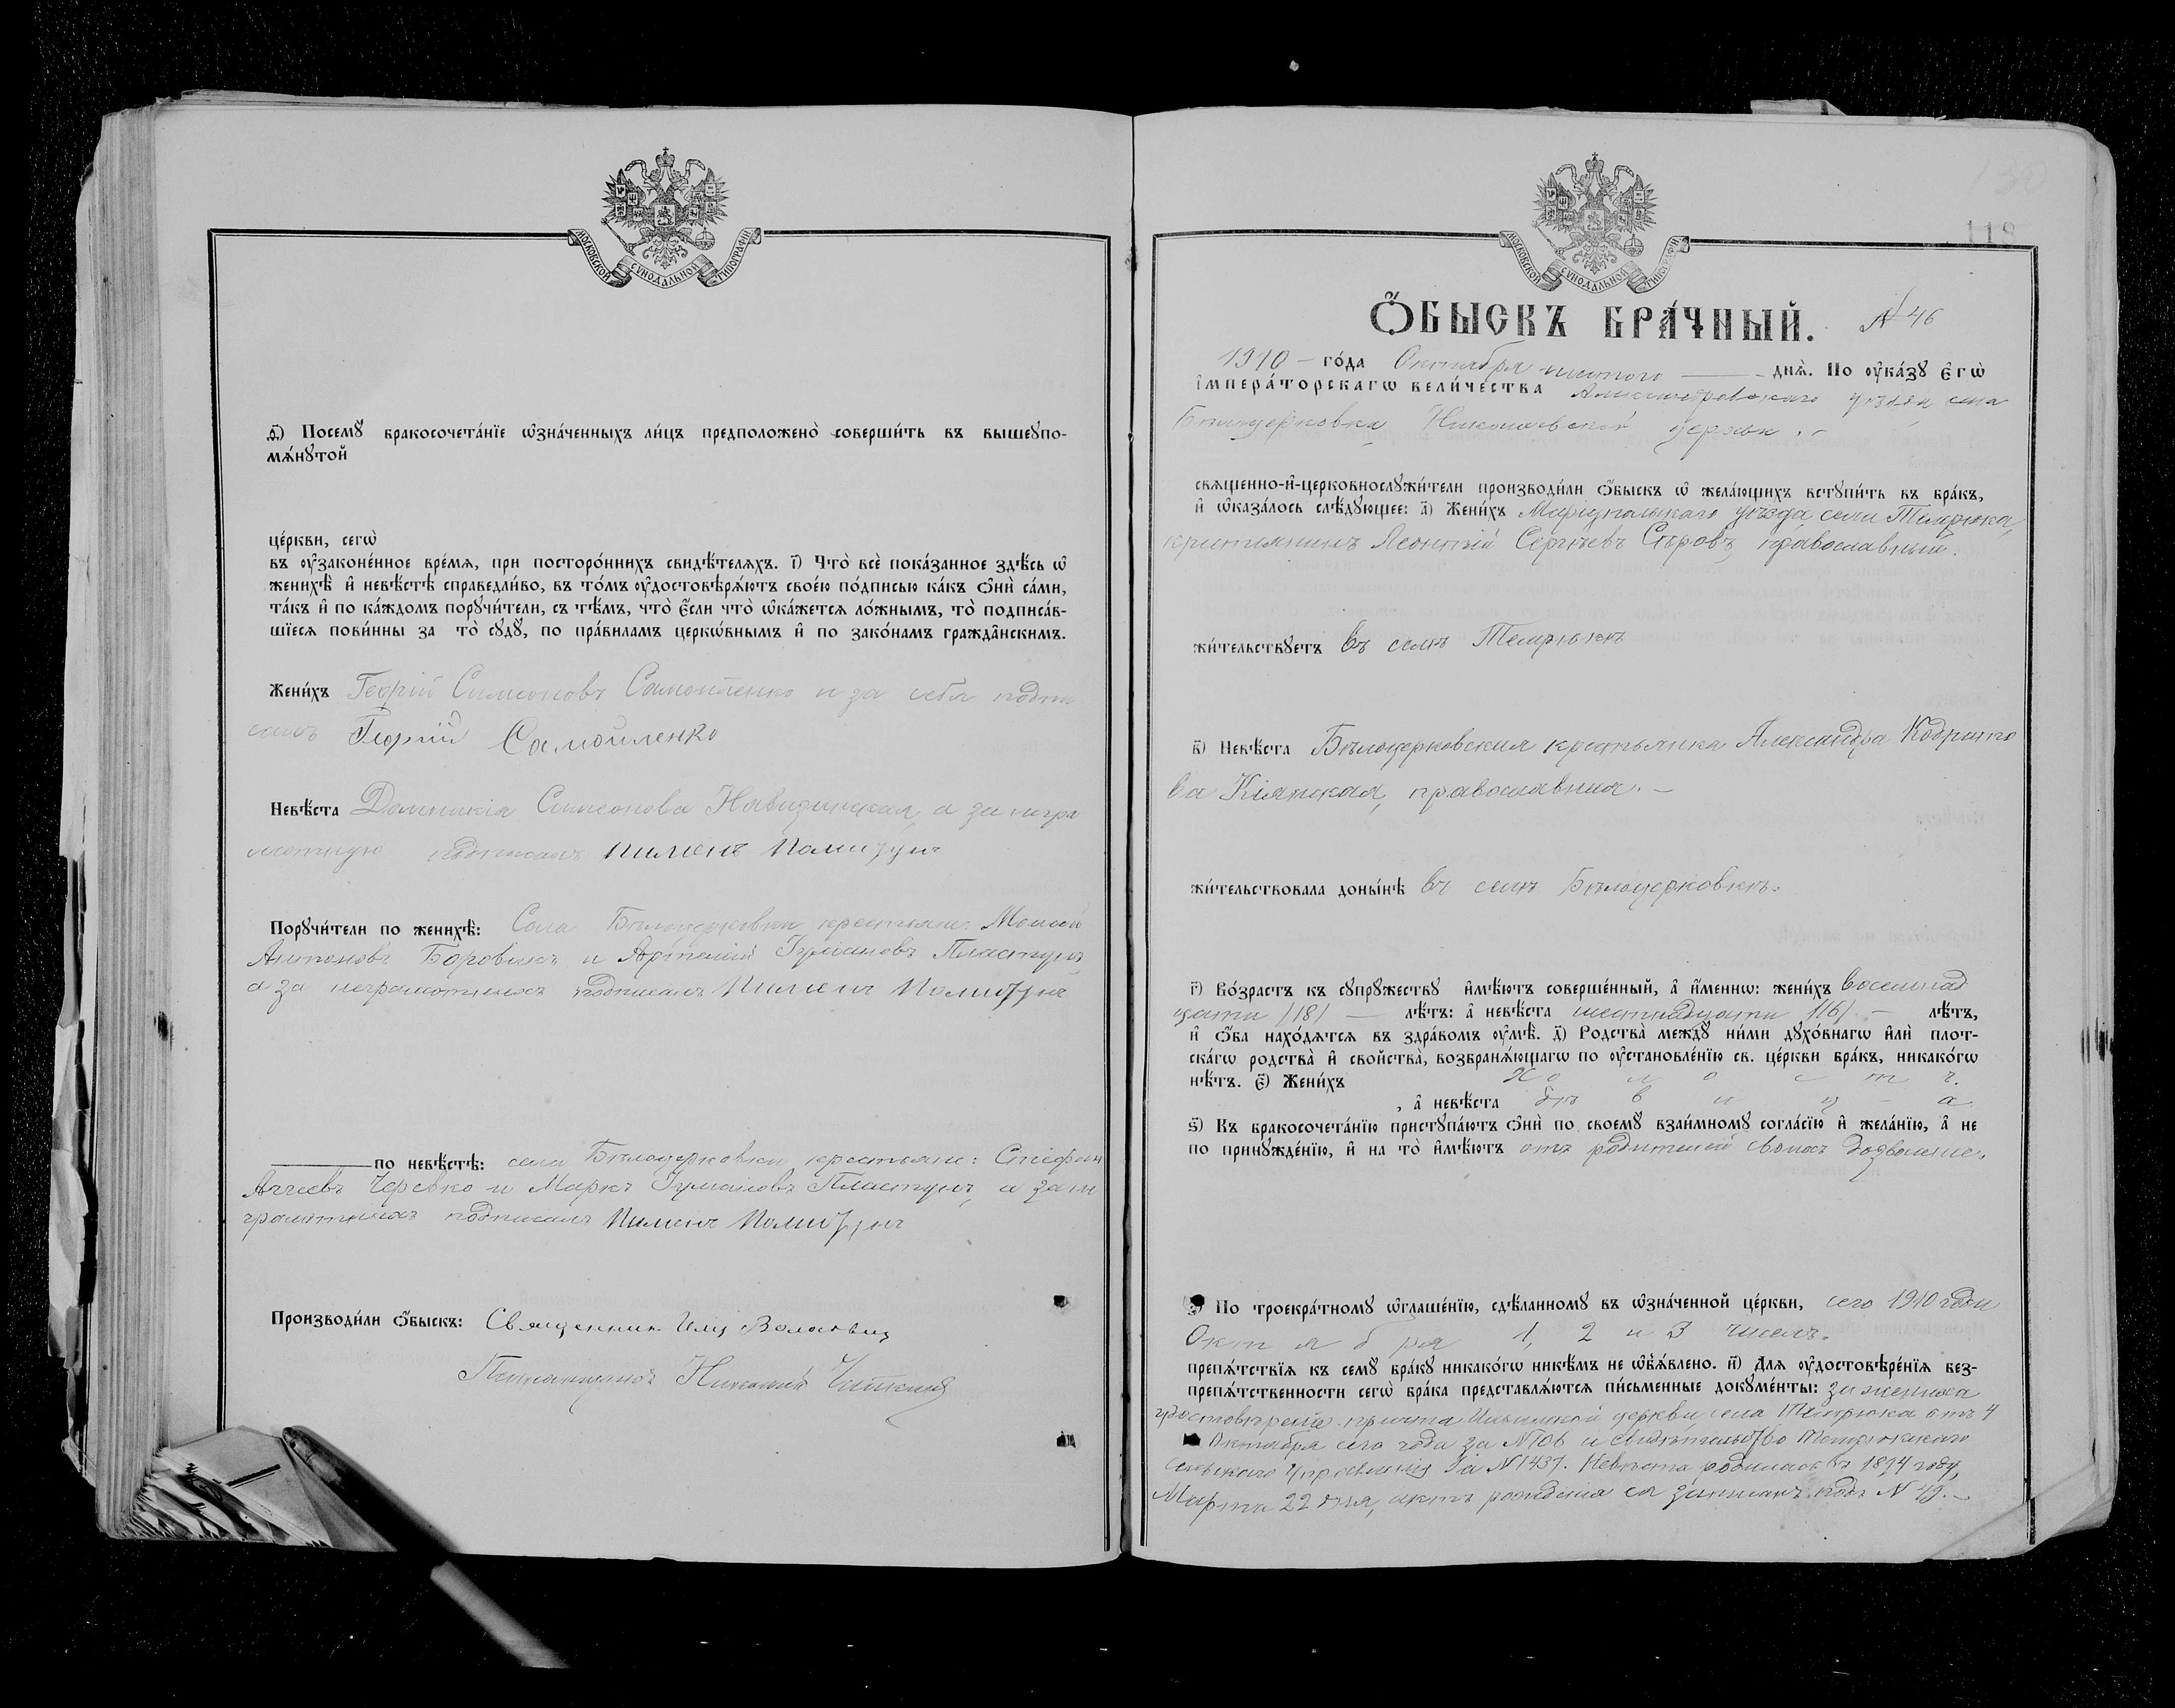 МОСКОВСКОЙ СѴНОДАЛЬНОЙ ТИПОГРАФІИ
ѳ҃) Посемꙋ̀ бракосочета́нїе ѡ҆зна́ченныхъ ли́цъ предположено̀ соверши́ть въ вышеꙋпо-
мѧ́нꙋтой
це́ркви, сегѡ̀
въ ᲂу҆зако́ненное вре́мѧ, при посторо́ннихъ свидѣ́телѧхъ. і҃) Что̀ всѐ пока́занное здѣ́сь ѡ҆
женихѣ̀ и҆ невѣ́стѣ справедли́во, въ то́мъ ᲂу҆достовѣрѧ́ютъ свое́ю по́дписью ка́къ ѻ҆нѝ са́ми,
та́къ и҆ по ка́ждомъ порꙋчи́тели, съ тѣ́мъ, что̀ є҆́сли что̀ ѡ҆ка́жетсѧ ло́жнымъ, то̀ подписа́в-
шїесѧ пови́нны за то̀ сꙋдꙋ̀, по пра́виламъ церкѡ́внымъ и҆ по зако́намъ гражда̑нскимъ.
Жени́хъ Георгій Симеоновъ Самойленко и за себя подпи
салъ Георгій Самойленко
Невѣ́ста Домникія Симеонова а за негра
мотную подписалъ Пименъ
Порꙋчи́тели по женихѣ̀: Села Бѣлоцерковки крестьяне: Моисей
Антоновъ Боровикъ и Артемій Пластунъ
а за неграмотныхъ подписалъ Пименъ
по невѣ́стѣ: села Бѣлоцерковки крестьяне: Стефан
Черевко и Маркъ Пластунъ, а за не
грамотныхъ подписалъ Пименъ
Производи́ли ѻ҆́быскъ: Священник
Псаломщикъ Николай
118
МОСКОВСКОЙ СѴНОДАЛЬНОЙ ТИПОГРАФІИ
Ѻ҆́БЫСКЪ БРА́ЧНЫЙ. № 46
1910 – го́да Октября шестого днѧ̀. По ᲂу҆ка́зꙋ є҆гѡ̀
і҆мпера́торскагѡ вели́чества Александровскаго уѣзда села
Бѣлоцерковка Николаевской церкви
свѧще́нно-и҆-церковнослꙋжи́тели производи́ли ѻ҆́быскъ ѡ҆ жела́ющихъ встꙋпи́ть въ бра́къ,
и҆ ѡ҆каза́лось слѣ́дꙋющее: а҃) Жени́хъ Маріупольскаго уѣзда села Темрюка,
крестьянинъ Леонтій Сергѣевъ Сѣровъ, православный.
жи́тельствꙋетъ въ селѣ Темрюкѣ
в҃) Невѣ́ста Бѣлоцерковская крестьянка Александра Кодрато
ва Кіянская, православная. –
жи́тельствовала доны́нѣ въ селѣ Бѣлоцерковкѣ.
г҃) Во́зрастъ къ сꙋпрꙋ́жествꙋ и҆мѣ́ютъ соверше́нный, а҆ и҆́меннѡ: жени́хъ восемнад
цати /18/ — лѣ́тъ: а҆ невѣ́ста шестнадцати /16/ – лѣ́тъ,
и҆ ѻ҆́ба нахо́дѧтсѧ въ здра́вомъ ᲂу҆мѣ̀. д҃) Родства̀ междꙋ̀ ни́ми дꙋхо́внагѡ и҆лѝ плот-
ска́гѡ родства̀ и҆ сво́йства̀, возбранѧ́ющагѡ по ᲂу҆становле́нїю св. це́ркви бра́къ, никако́гѡ
нѣ́тъ. є҃) Жени́хъ холостъ.
, а҆ невѣ́ста дѣвица
ѕ҃) Къ бракосочета́нїю пристꙋпа́ютъ ѻ҆нѝ по своемꙋ̀ взаи́мномꙋ согла́сїю и҆ жела́нїю, а҆ не
по принꙋжде́нїю, и҆ на то̀ и҆мѣ́ютъ отъ родителей своихъ дозволеніе.
з҃) По троекра́тномꙋ ѡ҆глаше́нїю, сдѣ́ланномꙋ въ ѡ҆зна́ченной це́ркви, сего 1910 года
Октября 1, 2 и 3 чиселъ.
препѧ́тствїѧ къ семꙋ̀ бра́кꙋ никако́гѡ никѣ́мъ не ѡ҆б̾ѧ́влено. и҃) Длѧ ᲂу҆достовѣре́нїѧ без-
препѧ́тственности сегѡ̀ бра́ка представлѧ́ютсѧ пи́сьменные докꙋме́нты: за жениха
удостовѣреніе причта церкви села Темрюка отъ 4
Октября сего года за № 106 и свидѣтельство Темрюкскаго
Сельскаго Управленія за № 1437. Невѣста родилась въ 1894 году,
Марта 22 дня, актъ рожденія ея записанъ подъ № 49. –